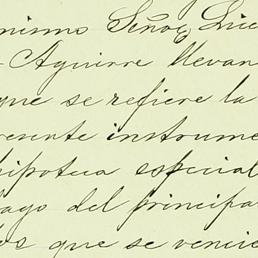 mismo Señor Luc
Aguirre llevan
que se refiere la
resente instrume
hipoteca especial
pago del principa
los que se vencie